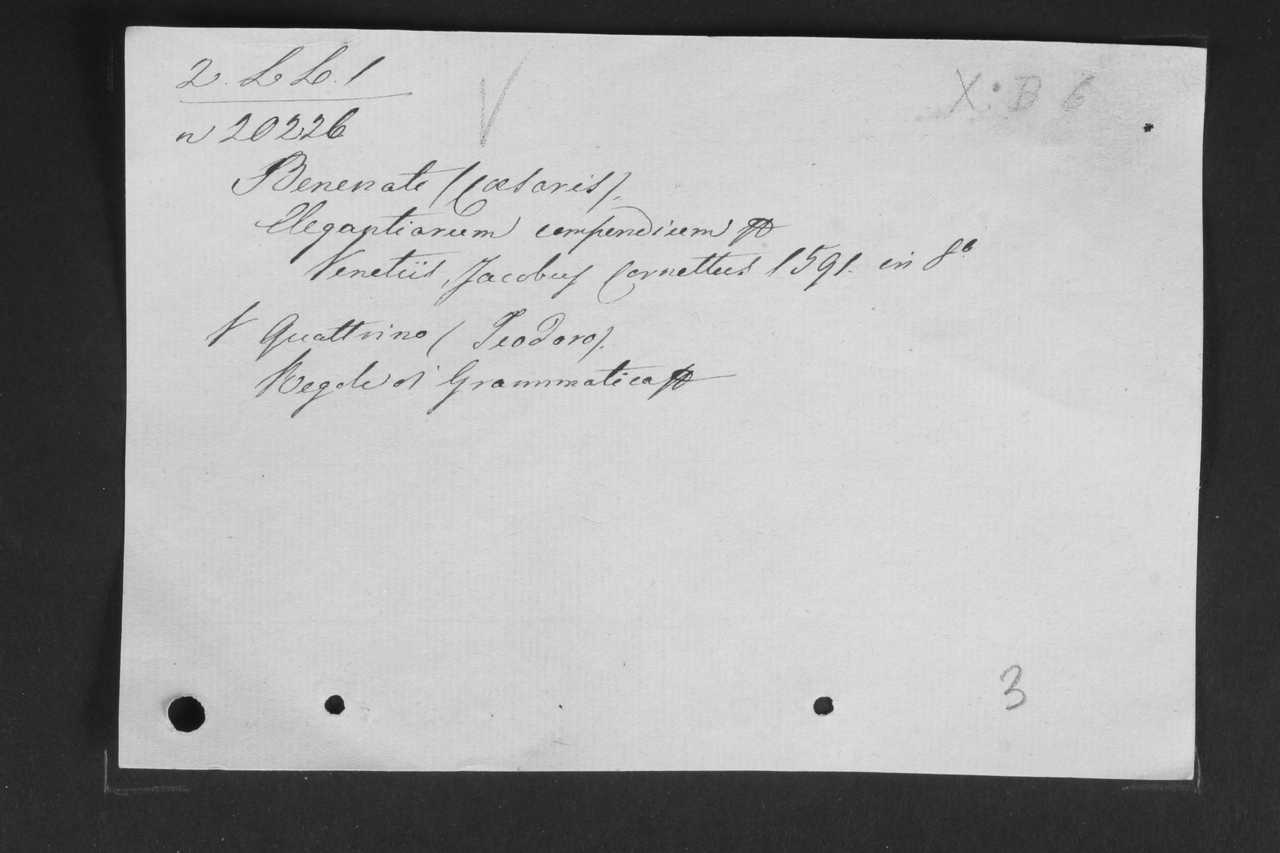 2. L L. 1
X. B 6
n 20226
Benenate (Cæsaris).
Elegantiarum compendium
Venetiis, Jacobus Cornettus 1591. in 8°
V Quattrino (Teodoro).
Regole di Grammatica
3